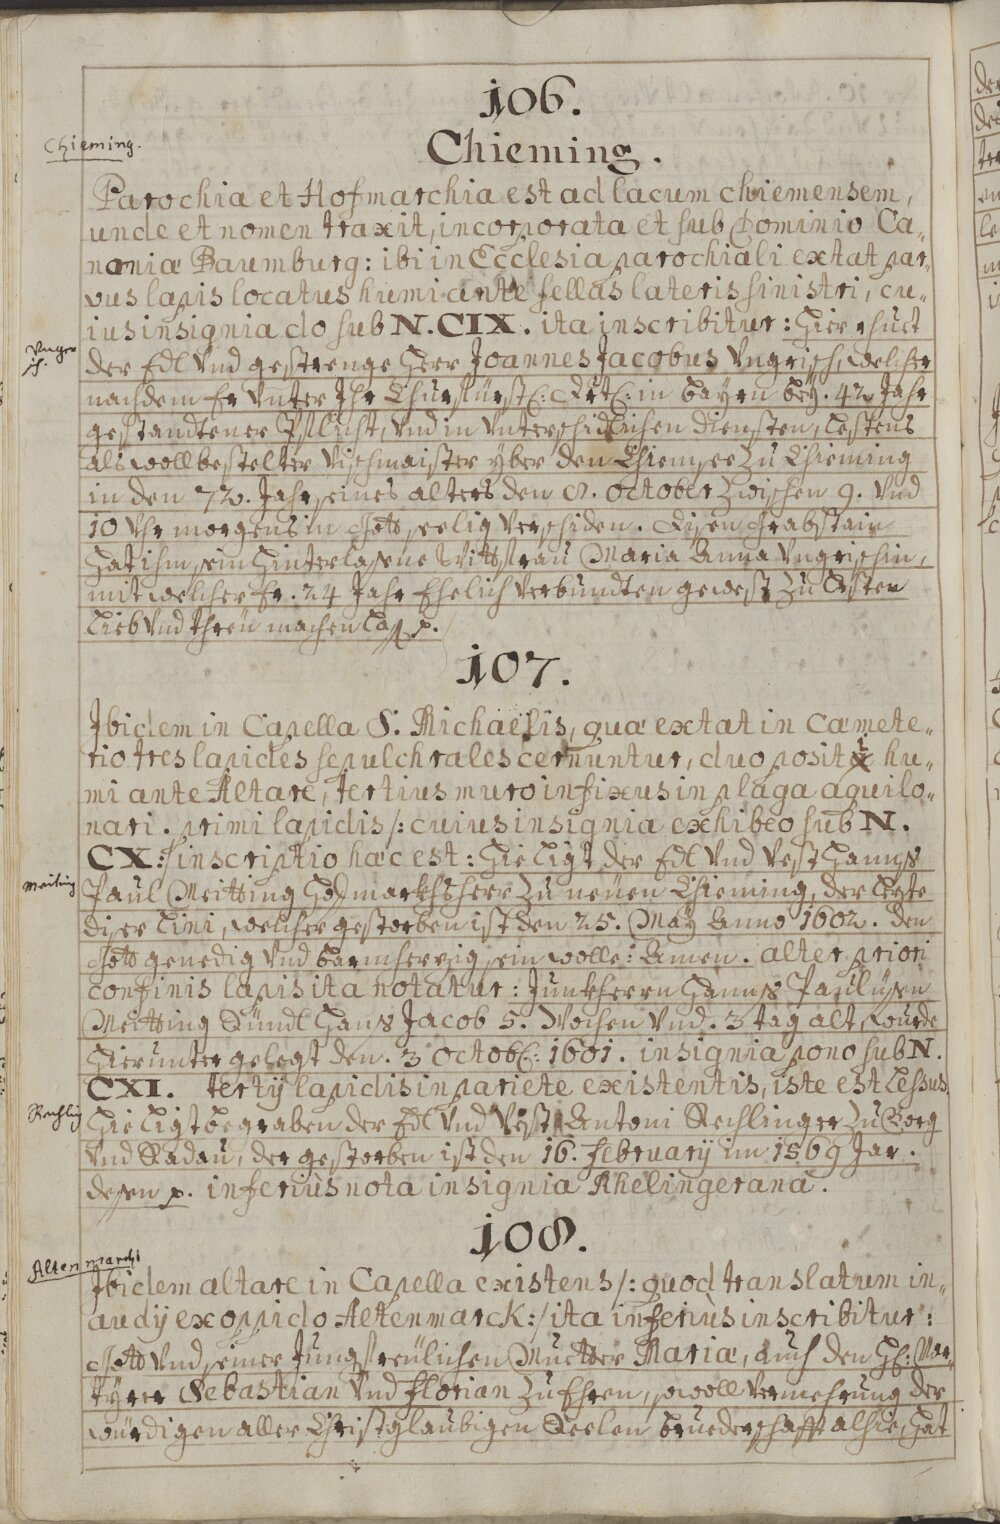 106.
Chieming.
Chieming.
Parochia et Hofmarchia est ad lacum chiemensem,
unde et nomen traxit, incorporata et sub Dominio Ca=
noniæ Baumburg: ibi in Ecclesia parochiali extat par=
vus lapis locatus humi ante sellas lateris sinistri, cu=
ius insignia do sub N. CIX. ita inscribitur: Hier rhuet
der Edl Vnd gestrenge Herr Joannes Jacobus Vngrisch, welcher
nachdem Er Vnter Ihr Churfürstl: in bayrn bey. 42 Jahr
gestandtener Pflicht, Vnd in Vnterschidlichen diensten, lestens
als wollbestelter Vischmaister yber den Chiemsee zu Chieming
in den 72. Jahr seines alters den 8. october zwischen 9. Vnd
10 Vhr morgens in Gott seelig Verschiden. disen Grabstain
Hat ihm sein Hinterlasene Wittfrau Maria Anna Vngrischin,
mit welcher Er. 24 Jahr Ehelich Verbundten gewest zu
Lieb Vnd Threu machen lass p.
107.
Ibidem in Capella S. Michaelis, quæ extat in Cæmete=
rio tres lapides sepulchrales cernuntur, duo positi hu=
mi ante Altare, tertius muro infixus in plaga aquilo=
nari. primi lapidis /: cuius insignia exhibeo sub N.
CX:/ inscriptio hæc est: Hie ligt der Edl Vnd Vest Hanns
Meiting
Paul Meitting Hofmarkhsherr zu neüen Chieming, der leste
diser Lini, welcher gestorben ist den 25. May Anno 1602. den
Gott genedig Vnd barmherzig sein wolle: Amen. alter priori
confinis lapis ita notatur: Junkherrn Hanns Paulüsen
Meitting Kündl Hans Jacob 5. Wochen Vnd. 3 tag alt, wurde
Hierunter gelegt den. 3 octobl: 1601. insignia pono sub N.
CXI. tertij lapidis in pariete existentis, iste est Lessus
Hie ligt begraben der Edl Vnd Vest Antoni Rechlinger zu
Vnd Radau, der gestorben ist den 16. february im 1569 Jar.
desen p. inferius nota insignia Rhelingeraná.
108.
Altenmarch
Ibidem altare in Capella existens /: quod translatum in=
audij ex oppido Altenmarck:/ ita inferiùs inscribitur:
Gott Vnd seiner Jungfreülichen Muetter Mariæ, auch den Hl: Mar=
tyrer Sebastian Vnd florian zu Ehren, sowoll Vermehrung der
würdigen aller Christglaubigen Seelen bruederschafft alhie, Hat